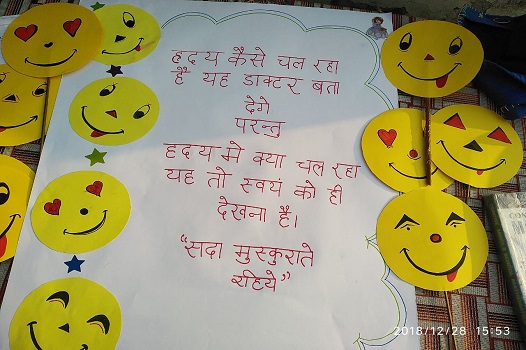 हृदय कैसे चल रहा
है यह डाक्टर बता
देगे
परन्तु
हृदय मे क्या चल रहा
यह तो स्वय को ही
देखना है।
"सदा मुस्कुराते
रहिये"
2018/12/28 15:53